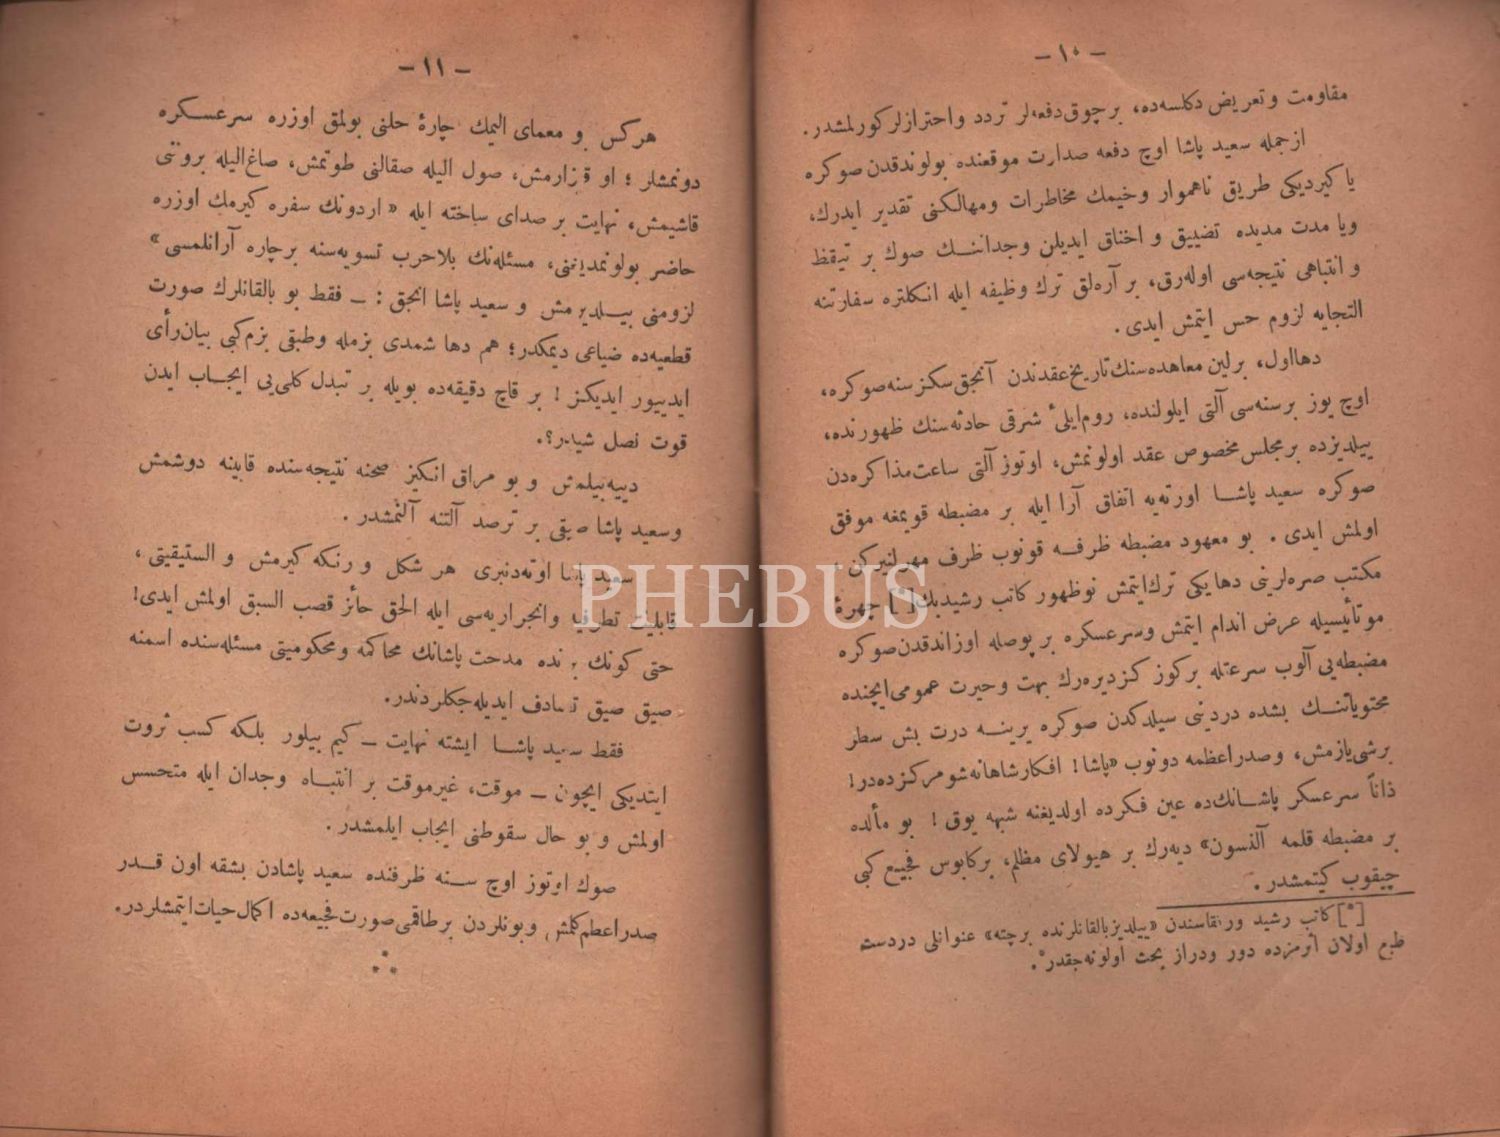 — ١٠ —
مقاومت وتعريض دكلسه‌ده، برچوق دفعه‌لر تردد واحترازلر كورلمشدر.
ازجمله سعيد پاشا اوچ دفعه صدارت موقعنده بولوندقدن صوكره
يا كيرديكى طريق ناهموار وخيمك مخاطرات ومهالكنى تقدير ايدرك،
ويا مدت مديده تضييق و اختناق ايديلن وجداننك صوك بر تيقظ
و انتباهى نتيجه‌سى اوله‌رق، بر آره‌لق ترك وظيفه ايله انكلتره سفارتنه
التجايه لزوم حس ايتمش ايدى.
دها اول، برلين معاهده‌سنك تاريخ عقدندن آنجق سكز سنه صوكره،
اوچ يوز برسنه‌سى آلتى ايلولنده، روم‌ايلىٔ شرقى حادثه‌سنك ظهورنده،
ييلديزده بر مجلس مخصوص عقد اولونمش، اوتوز آلتى ساعت مذاكره‌دن
صوكره سعيد پاشا اورته‌يه اتفاق آرا ايله بر مضبطه قويمغه موفق
اولمش ايدى. بو معهود مضبطه ظرفه قونوب ظرف مهرلنيركن،
مكتب صره‌لرينى دها يكى ترك ايتمش نوظهور كاتب رشيدبك[*] چهرهٔ
موتأييسيله عرض اندام ايتمش وسرعسكره بر پوصله اوزاندقدن صوكره
مضبطه‌يى آلوب سرعتله بركوز كزديره‌رك بهت وحيرت عمومى ايچنده
محتوياتنك بشده دردنى سيلدكدن صوكره يرينه درت بش سطر
برشى يازمش، وصدراعظمه دونوب «پاشا! افكار شاهانه شو مركزده‌در!
ذاتاً سرعسكر پاشانك‌ده عين فكرده اولديغنه شبهه يوق! بو مألده
بر مضبطه قلمه آلنسون» ديه‌رك بر هيولاى مظلم، بركابوس فجيع كبى
چيقوب كيتمشدر.
[*] كاتب رشيد ورفقاسندن «ييلديز بالقانلرنده برچته» عنوانلى دردست
طبع اولان اثرمزده دور ودراز بحث اولونه‌جقدر.
— ١١ —
هركس بو معماى اليمك چارهٔ حلنى بولمق اوزره سرعسكره
دونمشلر؛ او قزارمش، صول اليله صقالنى طوتمش، صاغ اليله بروننى
قاشيمش، نهايت بر صداى ساخته ايله «اردونك سفره كيرمك اوزره
حاضر بولونمديغنى، مسئله‌نك بلاحرب تسويه‌سنه برچاره آرانلمسى»
لزومنى بيلديرمش و سعيد پاشا انجق: — فقط بو بالقانلرك صورت
قطعيه‌ده ضياعى ديمكدر؛ هم دها شمدى بزمله وطبقى بزم كبى بيان رأى
ايدييور ايديكز! بر قاچ دقيقه‌ده بويله بر تبدل كلى‌يى ايجاب ايدن
قوت نصل شيدر؟.
دييه‌بيلمش و بو مراق انكيز صحنه نتيجه‌سنده قابينه دوشمش
وسعيد پاشا صيقى بر ترصد آلتنه آلنمشدر.
سعيد پاشا اوته‌دنبرى هر شكل و رنكه كيرمش و الستيقيتى،
قابليت تطرقيه وانجراريه‌سى ايله الحق حائز قصب السبق اولمش ايدى!
حتى كونك برنده مدحت پاشانك محاكمه ومحكوميتى مسئله‌سنده اسمنه
صيق صيق تصادف ايديله‌جكلردندر.
فقط سعيد پاشا ايشته نهايت — كيم بيلور بلكه كسب ثروت
ايتديكى ايچون — موقت، غيرموقت بر انتباه وجدان ايله متحسس
اولمش و بو حال سقوطنى ايجاب ايلمشدر.
صوك اوتوز اوچ سنه ظرفنده سعيد پاشادن بشقه اون قدر
صدراعظم كلمش وبونلردن برطاقمى صورت فجيعه‌ده اكمال حيات ايتمشلردر.
⁂
PHEBUS